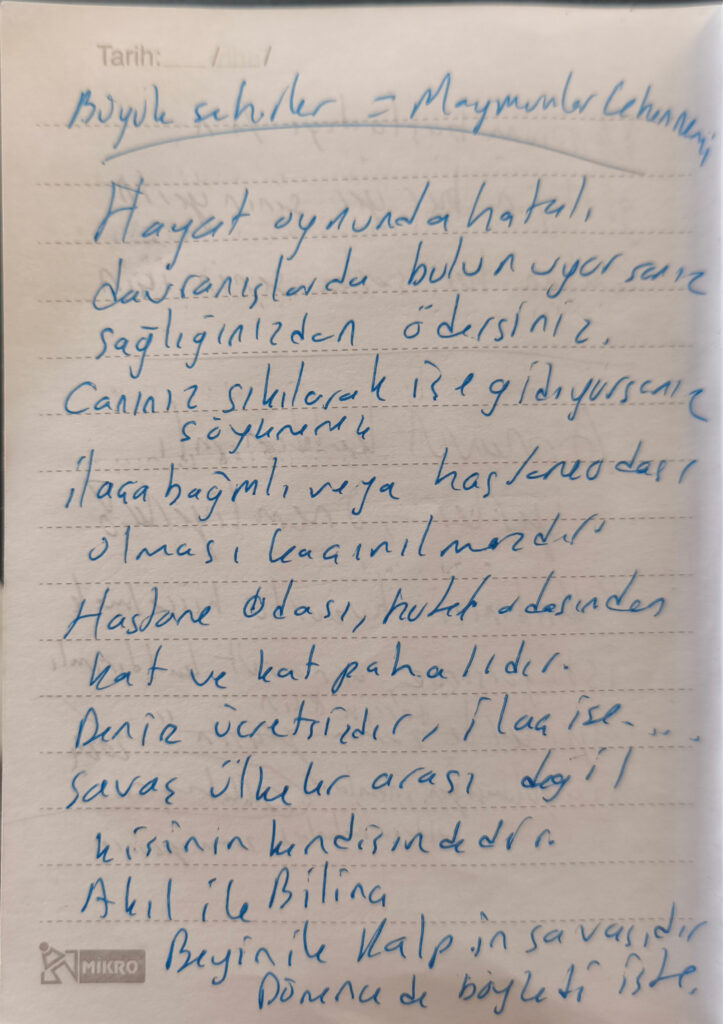 Tarih: / /
Büyük şehirler = Maymunlar Cehennemi
Hayat oyununda hatalı
davranışlarda bulunuyorsanız
sağlığınızdan ödersiniz.
Canınız sıkılarak işe gidiyorsanız
ilaca bağımlı veya hastane odası
olması kaçınılmazdır
Hastane odası, hotel odasından
kat ve kat pahalıdır.
Deniz ücretsizdir, ilaç ise....
Savaş ülkeler arası değil
kişinin kendisindedir.
Akıl ile Bilinç
Beyin ile Kalpin savaşıdır
de böylesi işte.
MİKRO